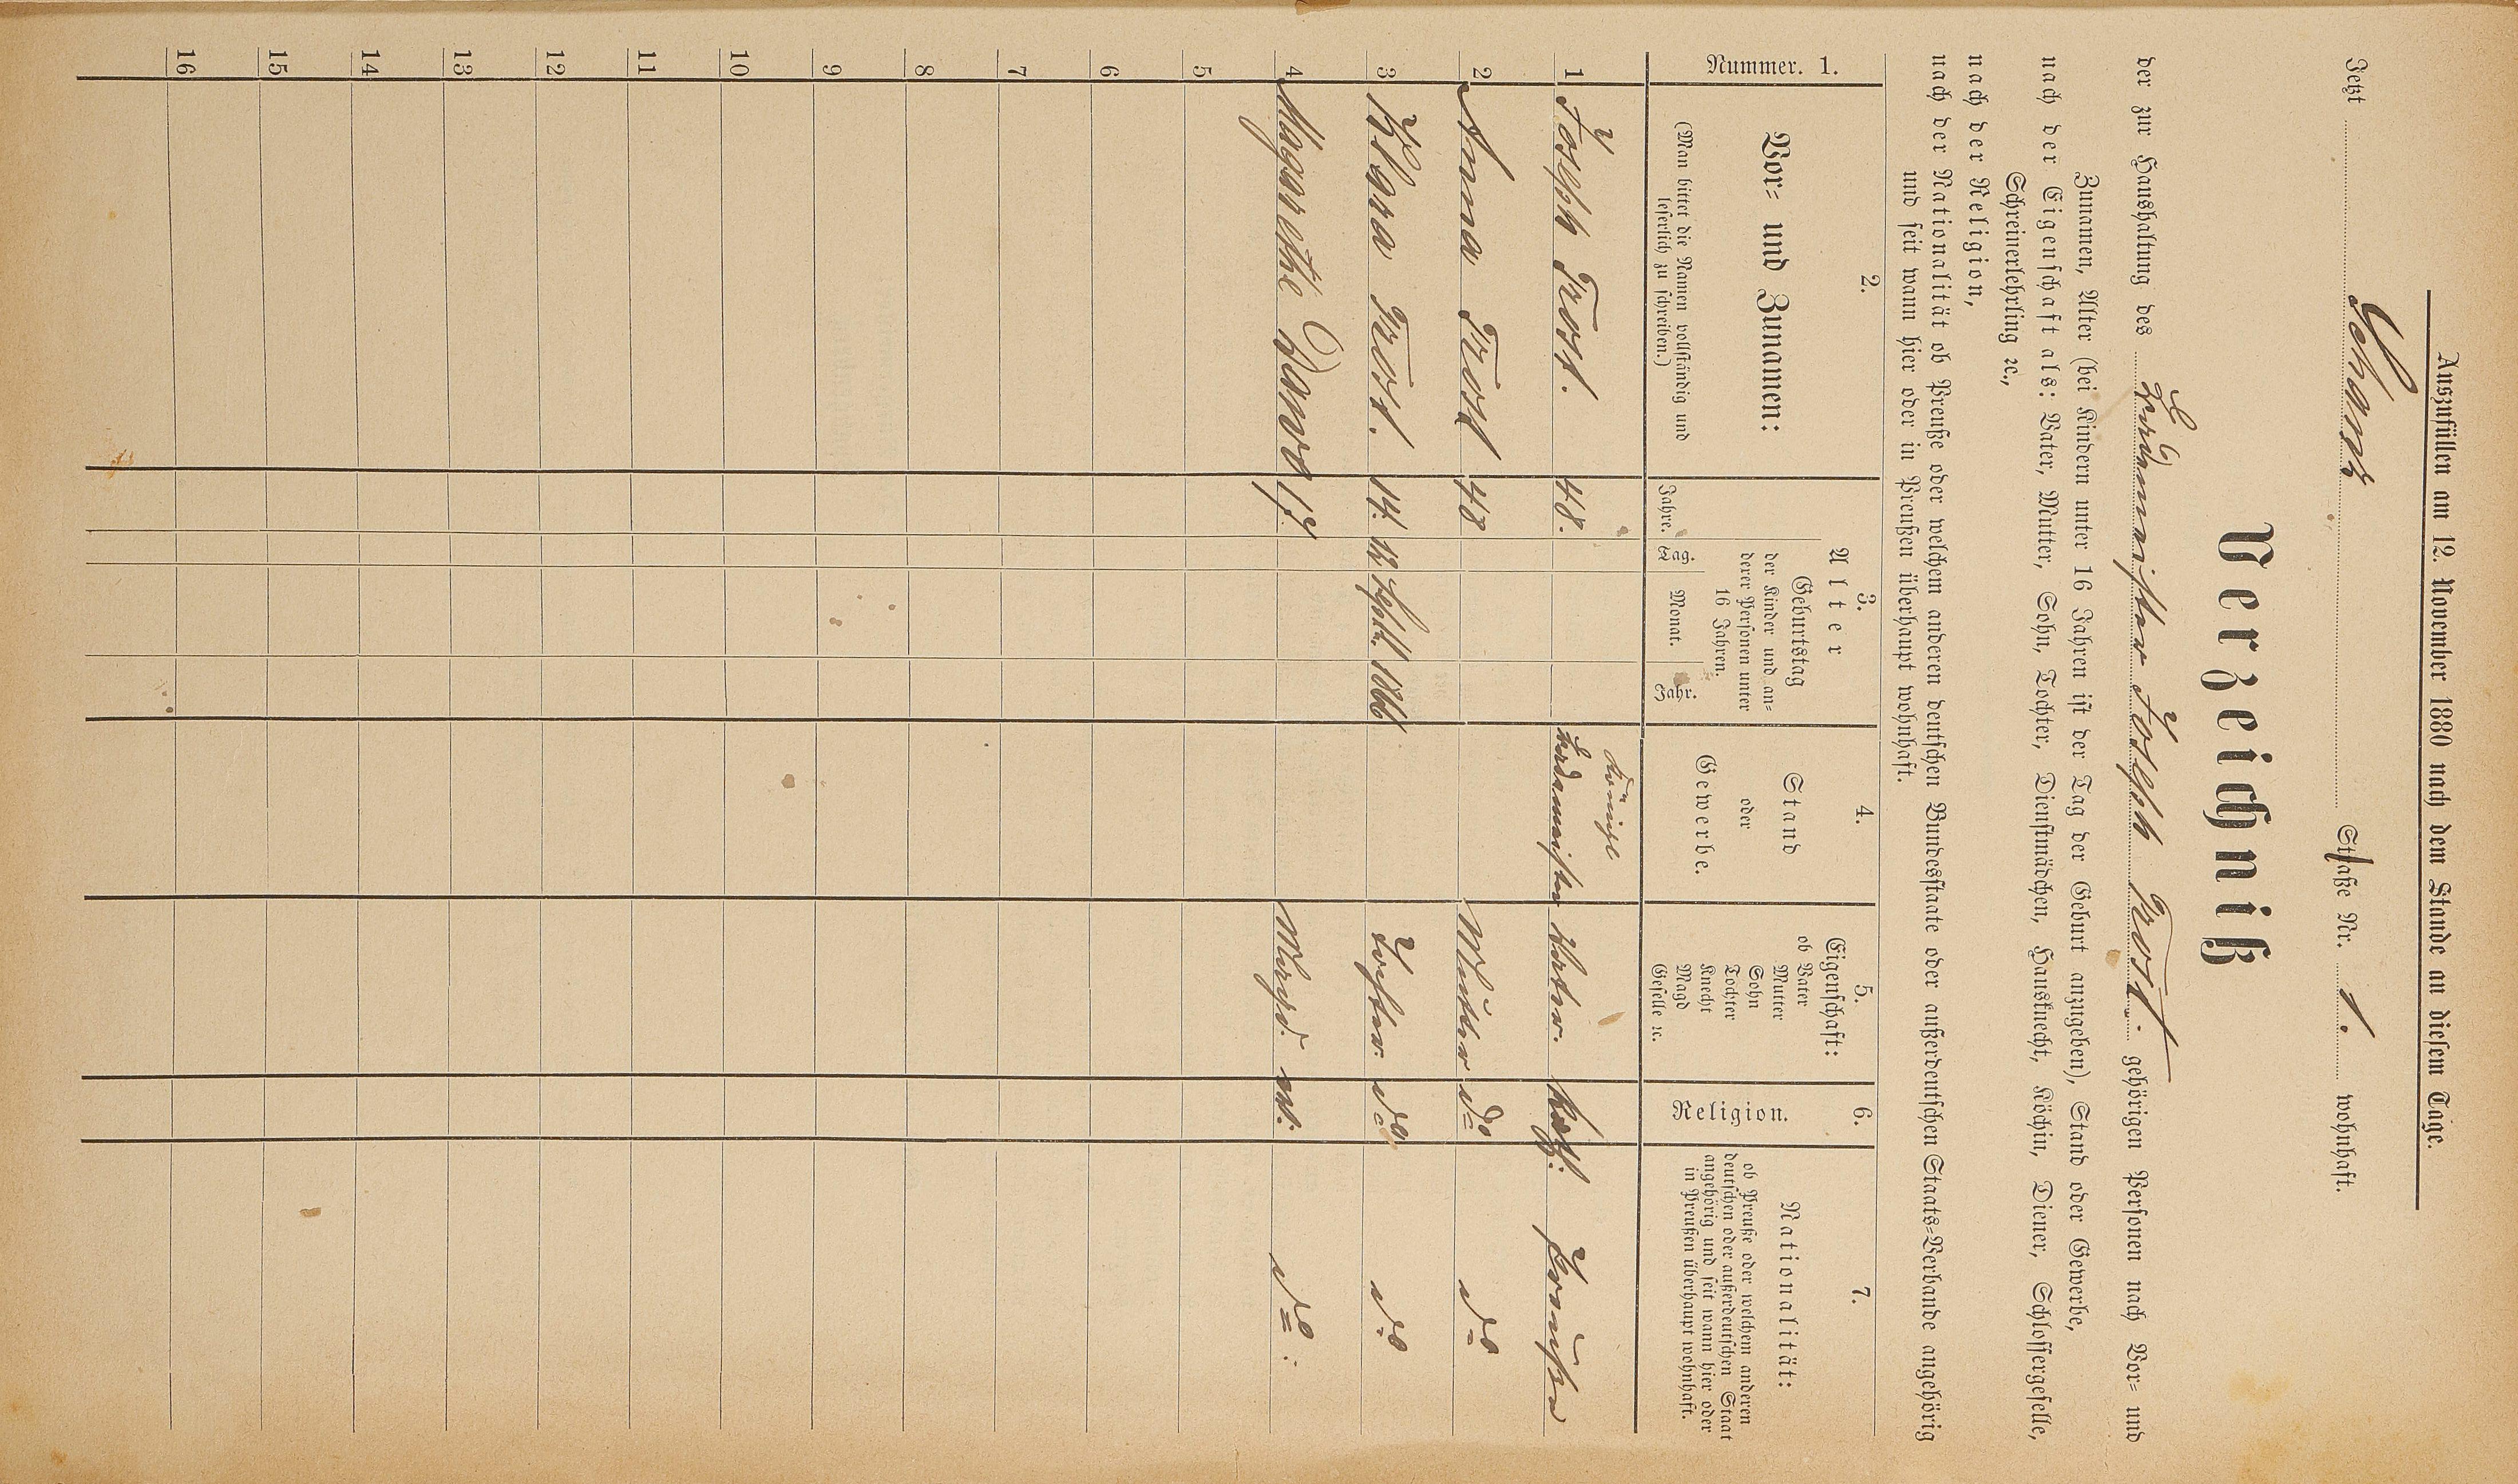 Auszufüllen am 12. November 1880 nach dem Stande an diesem Tage.
Jetzt Schanz Straße Nr. 1. wohnhaft.
Verzeichniß
der zur Haushaltung des Joseph Trost. gehörigen Personen nach Vor- und
Zunamen, Alter (bei Kindern unter 16 Jahren ist der Tag der Geburt anzugeben), Stand oder Gewerbe,
nach der Eigenschaft als: Vater, Mutter, Sohn, Tochter, Dienstmädchen, Hausknecht, Köchin, Diener, Schlossergeselle,
Schreinerlehrling ꝛc.,
nach der Religion,
nach der Nationalität ob Preuße oder welchem anderen deutschen Bundesstaate oder außerdeutschen Staats-Verbande angehörig
und seit wann hier oder in Preußen überhaupt wohnhaft.
Nummer. 1.
2.
Vor- und Zunamen:
(Man bittet die Namen vollständig und
leserlich zu schreiben.)
3.
Alter
Jahre.
Geburtstag
der Kinder und an-
derer Personen unter
16 Jahren.
Tag. Monat. Jahr.
4.
Stand
oder
Gewerbe.
5.
Eigenschaft:
ob Vater
Mutter
Sohn
Tochter
Knecht
Magd
Geselle ꝛc.
6.
Religion.
7.
Nationalität:
ob Preuße oder welchem anderen
deutschen oder außerdeutschen Staat
angehörig und seit wann hier oder
in Preußen überhaupt wohnhaft.
königl
1 Joseph Trost. 48. Vater. kath: Preußen
2 Anna Trost 48 Mutter do
do
3 Klara Trost. 14. 12 Septbr. 1866 Tochter. do do
4 Magarethe 17. Magd. do:
5
6
7
8
9
10
11
12
13
14
15
16